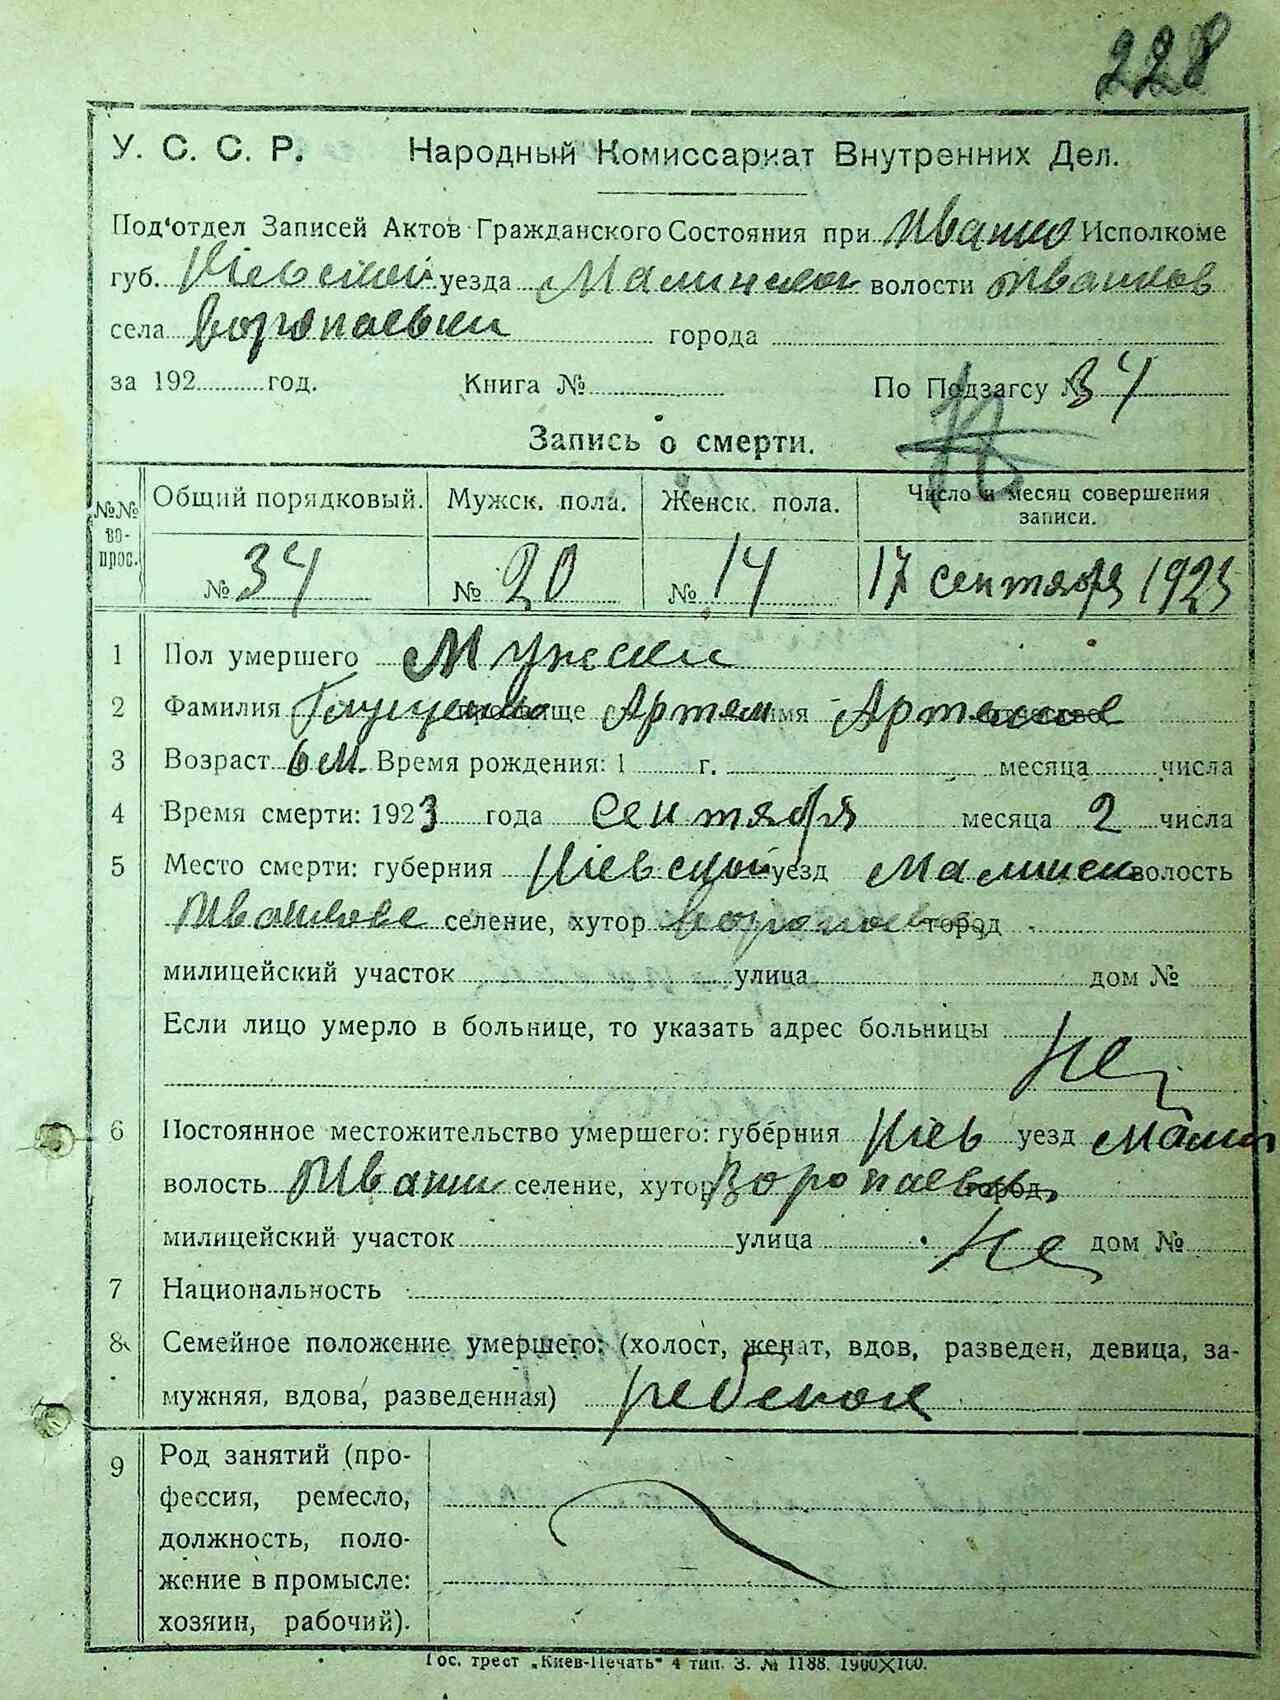 228
У. С. С. Р. Народный Комиссариат Внутренних Дел.
Под‘отдел Записей Актов Гражданского Состояния при Иванко Исполкоме
губ. Кіевской уезда Малинской волости Иванков
села Воропаевки города
за 192 год. Книга № По Подзагсу № 34
Запись о смерти.
№№ вопрос. Общий порядковый. Мужск. пола. Женск. пола. Число и месяц совершения записи.
№ 34 № 20 № 14 17 сентября 1923
1 Пол умершего Мужски
2 Фамилия прозвище Артем имя Артемов отчество
3 Возраст 6 м. Время рождения: 1 г. месяца числа
4 Время смерти: 1923 года сентября месяца 2 числа
5 Место смерти: губерния Кіевской уезд Малинск волость
Иванкове селение, хутор Воропаев город
милицейский участок улица дом №
Если лицо умерло в больнице, то указать адрес больницы
Не
6 Постоянное местожительство умершего: губерния Кіев уезд Малин
волость Иванк селение, хутор Воропаевк город
милицейский участок улица Не дом №
7 Национальность
8 Семейное положение умершего: (холост, женат, вдов, разведен, девица, за-
мужняя, вдова, разведенная) ребенок
9 Род занятий (про-
фессия, ремесло,
должность, поло-
жение в промысле:
хозяин, рабочий).
Гос. трест „Киев-Печать“ 4 тип. З. № 1188. 1900X100.